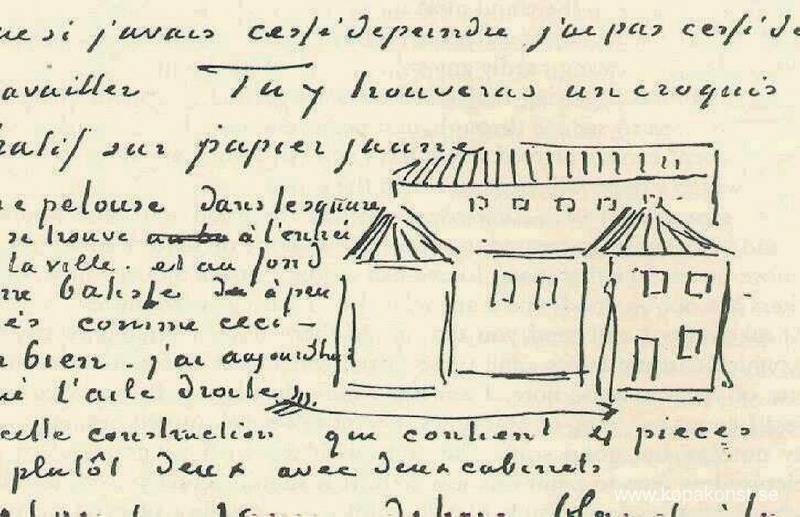 si j'avais cessé de peindre j'ai pas cessé de
availler Tu y trouveras un croquis
hatif sur papier jaune
pelouse dans le square
se trouve à l'entrée
la ville et au fond
batisse à peu
ès comme ceci –
bien. j'ai aujourdhui
l'aile droite
cette construction qui contient 4 pièces
plutôt deux avec deux cabinets
www.kopakonst.se